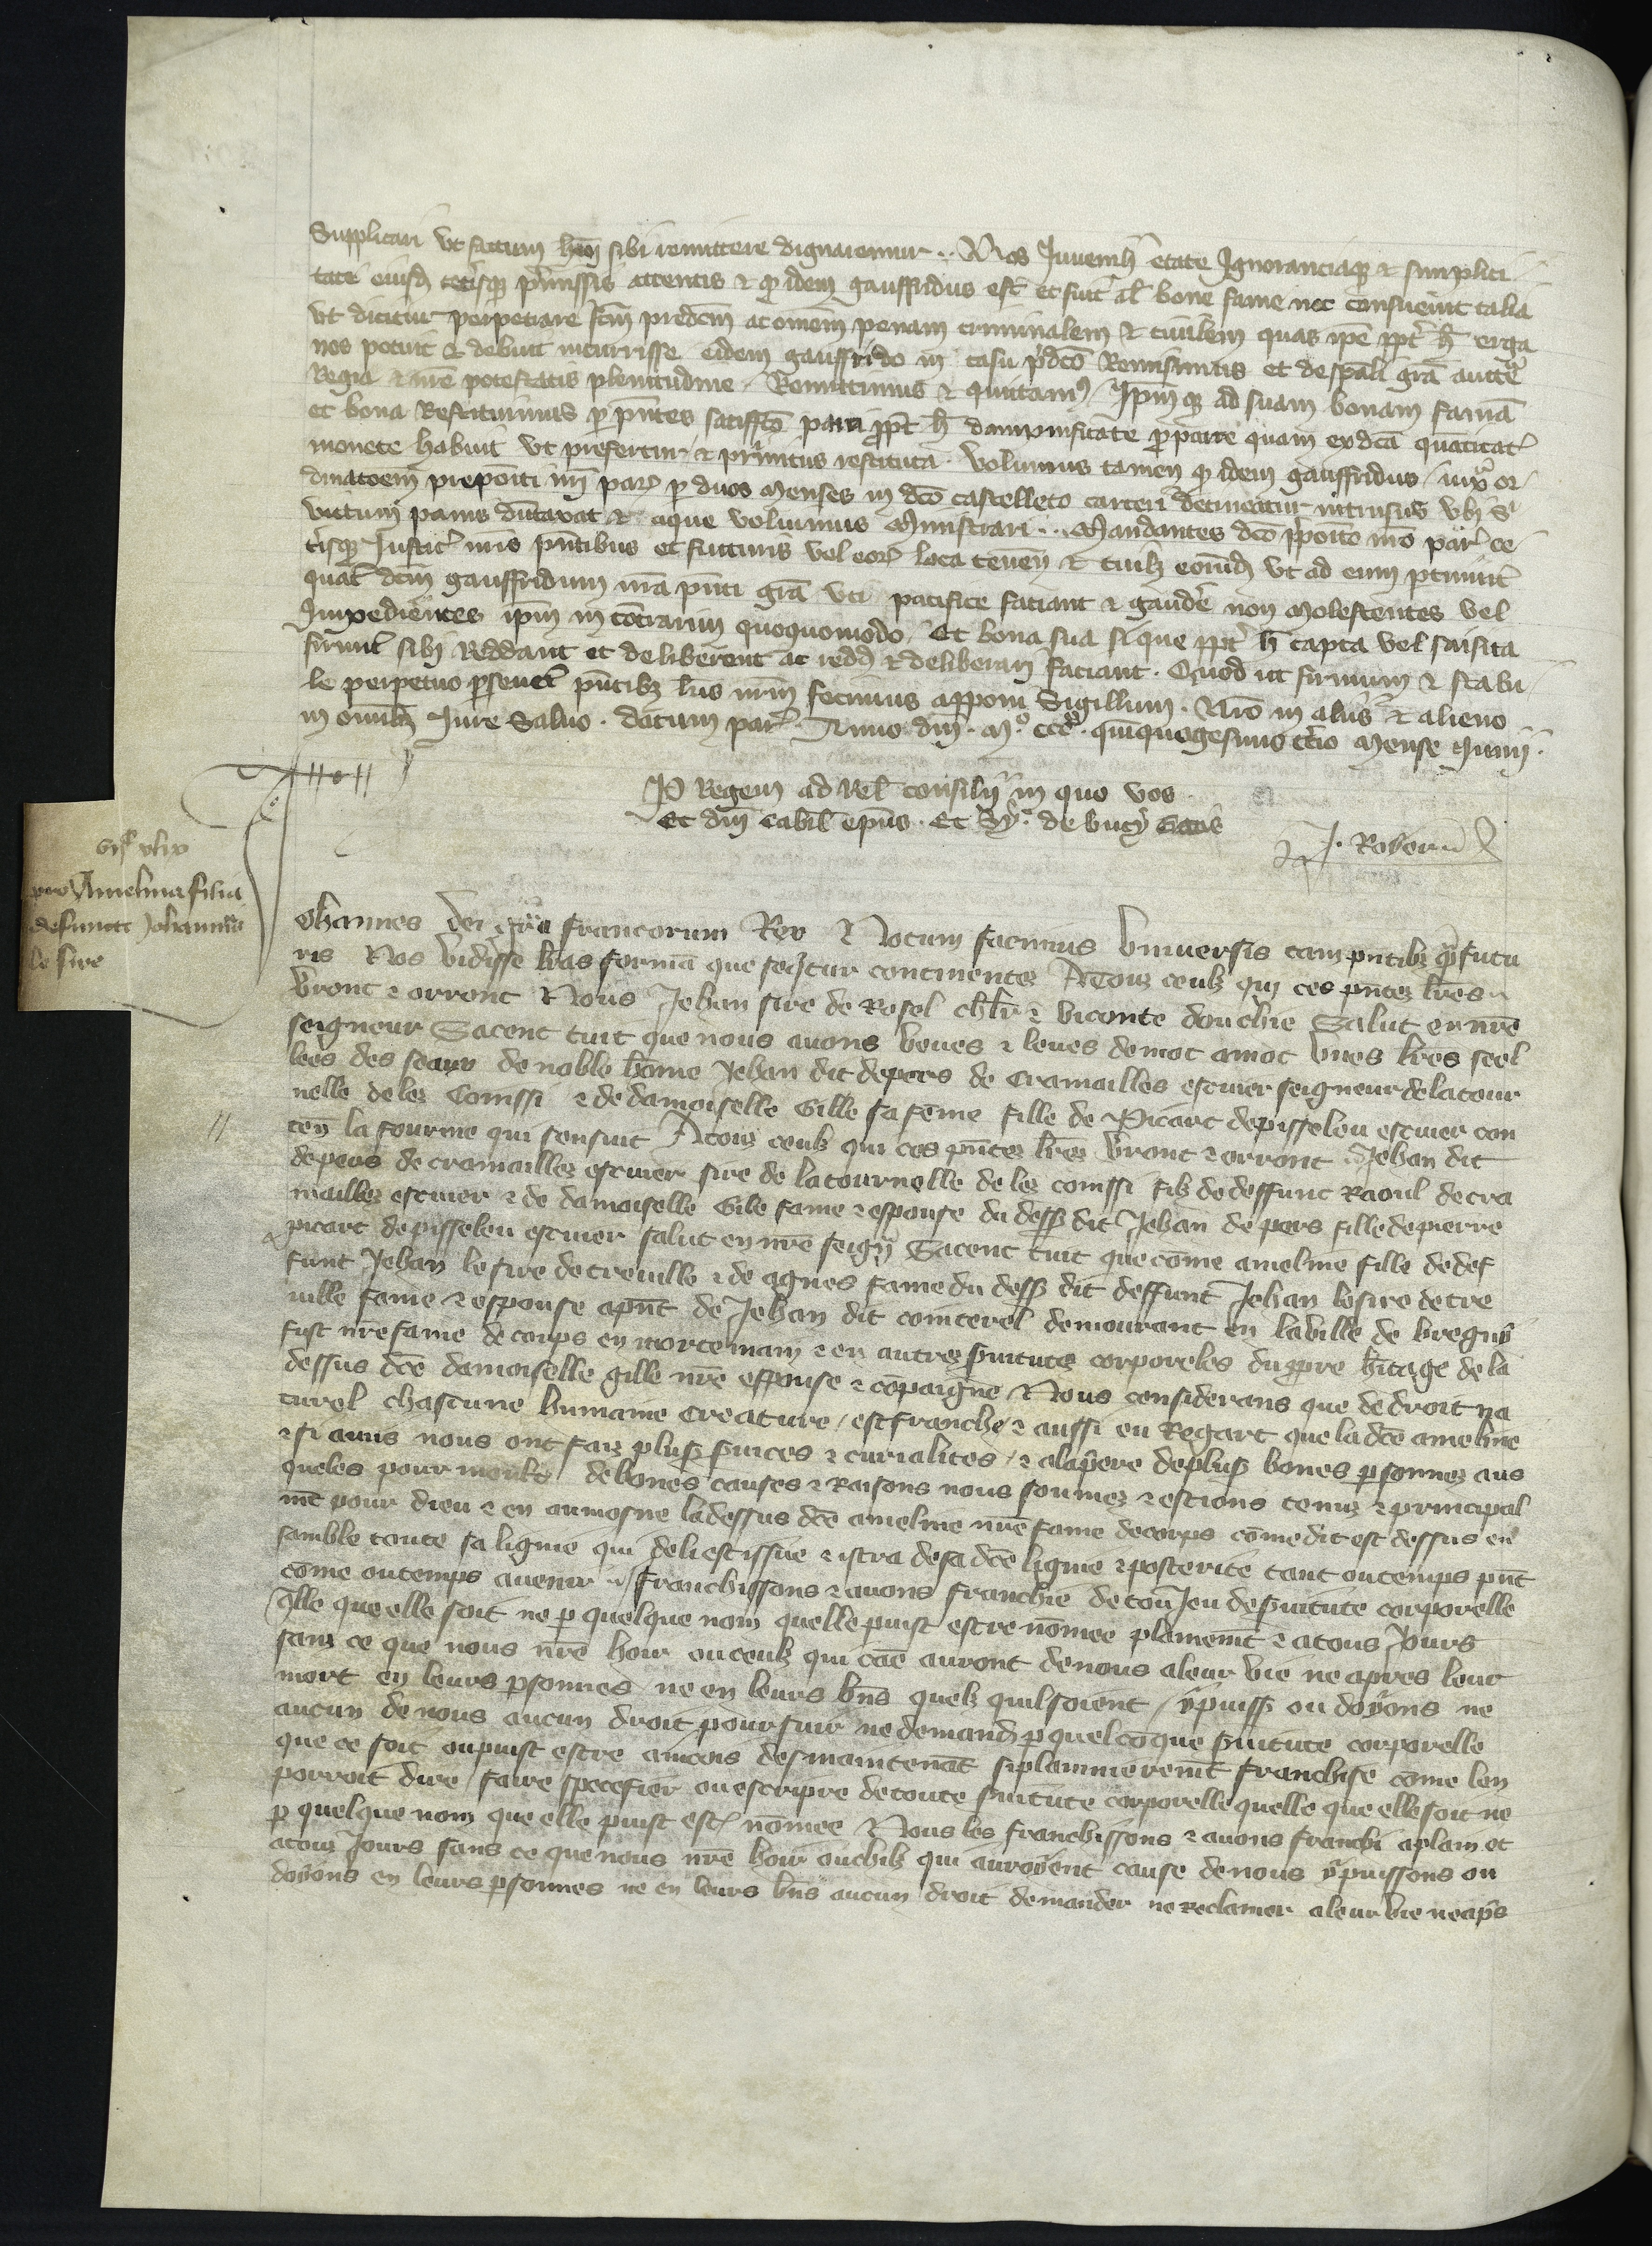 Supplicari ut factum hmoi sibi remittere dignaremur .. Nos Juvenili etate Ignoranciaque & simplici
tate eiusd ceterisque premissis attentis & quod idem gauffridus est et fuit al bone fame nec consuevit talia
ut dicitur perpetrare fcm predcm ac omnem penam criminalem & civilem quas ipse ppter h erga
nos potuit & debuit incurrisse eidem gauffrido in casu pdco Remisimus et de spali gra aucte
Regia & nre potestatis plenitudine Remittimus & quittamus Ipmque ad suam bonam famam
et bona Restituimus per pntes satisfco parti ppt h dampnificate pro parte quam ex dca quantitate
monete habuit ut prefertur & primitus restituta . volumus tamen quod idem gauffridus / iuxta or
dinatoem prepoiti nri par per duos menses in dco castelleto carceri detineatur intrusus ubi sibi
victum panis dutaxat & aque volumus Ministrari ... Mandantes dco ppoito nro par ce
terisque Justic nris pntibus et futuris vel eor loca tenen & cuilz eorumd ut ad eum ptinuit
quat dcm gauffridum nra pnti gra uti pacifice faciant & gaudere non Molestentes vel
Impedientes ipm in contrarium quoquomodo / Et bona sua si que ppt h capta vel saisita
fuerint sibi Reddant et deliberent ac redd & deliberari faciant . Quod ut firmum & stabi
le perpetuo perseveret pntibz lris nrm fecimus apponi Sigillum . Nro in aliis & alieno
in omnibz Jure Salvo . datum par . Anno dni . Mo . ccco . quinquagesimo tcio Mense Junii .
P Regem ad Rel consilii in quo vos
Et dni Cabil epus . Et Sy . de bucy
J . Rober
pro Amelina filia
defuncti Johannis
le sire
ohannes dei gra francorum Rex & Notum facimus Universis tam pntibz quam futu
ris Nos vidisse lras formam que sequitur continentes A tous ceulz qui ces pntez lres
vront & orront Nous Jehan sire de Rosel chlr & viconte douchie Salut en nre
seigneur Sacent tuit que nous avons veues & leues de mot a mot unes lres seel
lees des seaux de noble home Jehan dit de pers de Cramailles escuier seigneur de la tour
nelle de lez Conssi & de damoiselle Gille sa feme fille de Picart de pisseleu escuier con
ten la fourme qui sensuit A tous ceulz qui ces pntez lrez vront & orront Jehan dit
de pers de cramaillez escuier sire de la tournelle de lez conssi filz de deffunt Raoul de cra
maillez escuier & de damoiselle Gile fame & espouse du dess dit Jehan de pers fille de pierre
picart de pisseleu escuier salut en nre seign Sacent tuit que come ameline fille de def
funt Jehan le sire de treville & de agnes fame du dess dit deffunt Jehan le sire de tre
ville fame & espouse apnt de Jehan dit conterel demourant en la ville de bregny
fust nre fame de corps en morte main & en autres suitutes corporeles du ppre hitage de la
dessus dce damoiselle gille nre espouse & copaigne Nous considerans que de droit na
turel chascune humaine Creature / est franche & aussi eu Regart que la dce ameline
& si amis nous ont fais pluss suices & curialites / & a la pere de pluss bones psonnez aus
queles pour moult de bones causes & Raisons nous soumez & estions tenuz & principal
met pour dieu & en aumosne la dessus dce ameline nre fame de corps come dit est dessus en
samble toute sa lignie qui de li est issue & istra de sa dce lignie & posterite tant ou temps pnt
come ou temps avenir franchissons & avons franchie de tou Jeu de suitute corporelle
qlle que elle soit ne p quelque nom quelle puist estre nomee plainemt & a tous Jours
sanz ce que nous nre hoir ou ceulz qui cae auront de nous a leur vie ne apres leur
mort en leurs psonnes / ne en leurs bns quelz quil soient / y puiss ou doyons ne
aucun de nous aucun droit poursuir ne demand p quelcoque suitute corporelle
que ce soit ou puist estre aincois des maintenat si plainnieremt franchise come len
porroit dire / faire specefier ou escripre de toute suitute corporelle quelle que elle soit ne
p quelque nom que elle puist est nomee Nous les franchissons & avons franchi a plain et
a tous Jours sans ce que nous nre hoir ou chilz qui auroyent cause de nous y puissons ou
doyons en leurs psonnes ne en leurs bns aucun droit demander ne Reclamer a leur vie ne aps